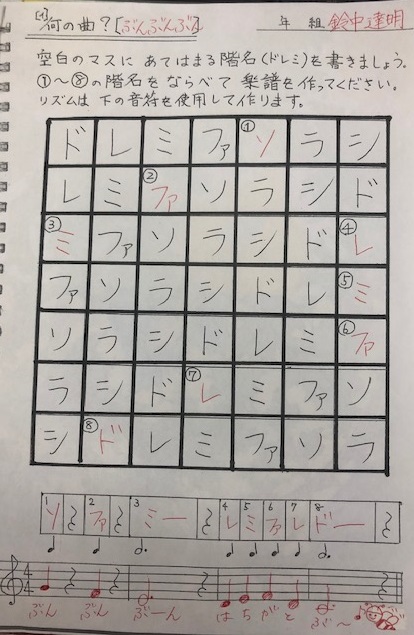 [4]何の曲?[ぶんぶんぶん]
年 組 鈴中達明
空白のマスに あてはまる階名(ドレミ)を書きましょう。
①〜⑧の階名をならべて楽譜を作ってください。
リズムは下の音符を使用して作ります。
ド レ ミ ファ ①ソ ラ シ
レ ミ ②ファ ソ ラ シ ド
③ミ ファ ソ ラ シ ド ④レ
ファ ソ ラ シ ド レ ⑤ミ
ソ ラ シ ド レ ミ ⑥ファ
ラ シ ド ⑦レ ミ ファ ソ
シ ⑧ド レ ミ ファ ソ ラ
1 ソ 2 ファ 3 ミー 4 レ 5 ミ 6 ファ 7 レ 8 ドー
4 4
ぶん ぶん ぶーん は ち が と ぶ〜